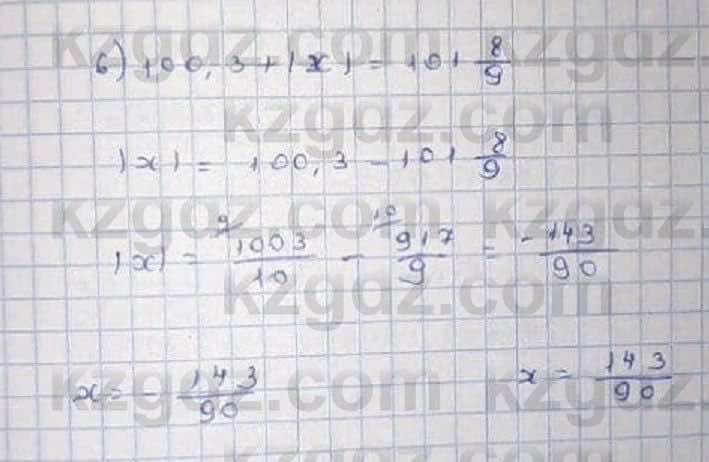 kzgdz.com kzgdz.com
б) 100,3 + |x| = 101 8/9
kzgdz.com
|x| = 100,3 - 101 8/9
kzgdz.com kzgdz.com
|x| = ⁹⁄1003/10 - ¹⁰⁄917/9 = -143/90
kzgdz.com
kzgdz.com kzgdz.com
x = - 143/90 x = 143/90